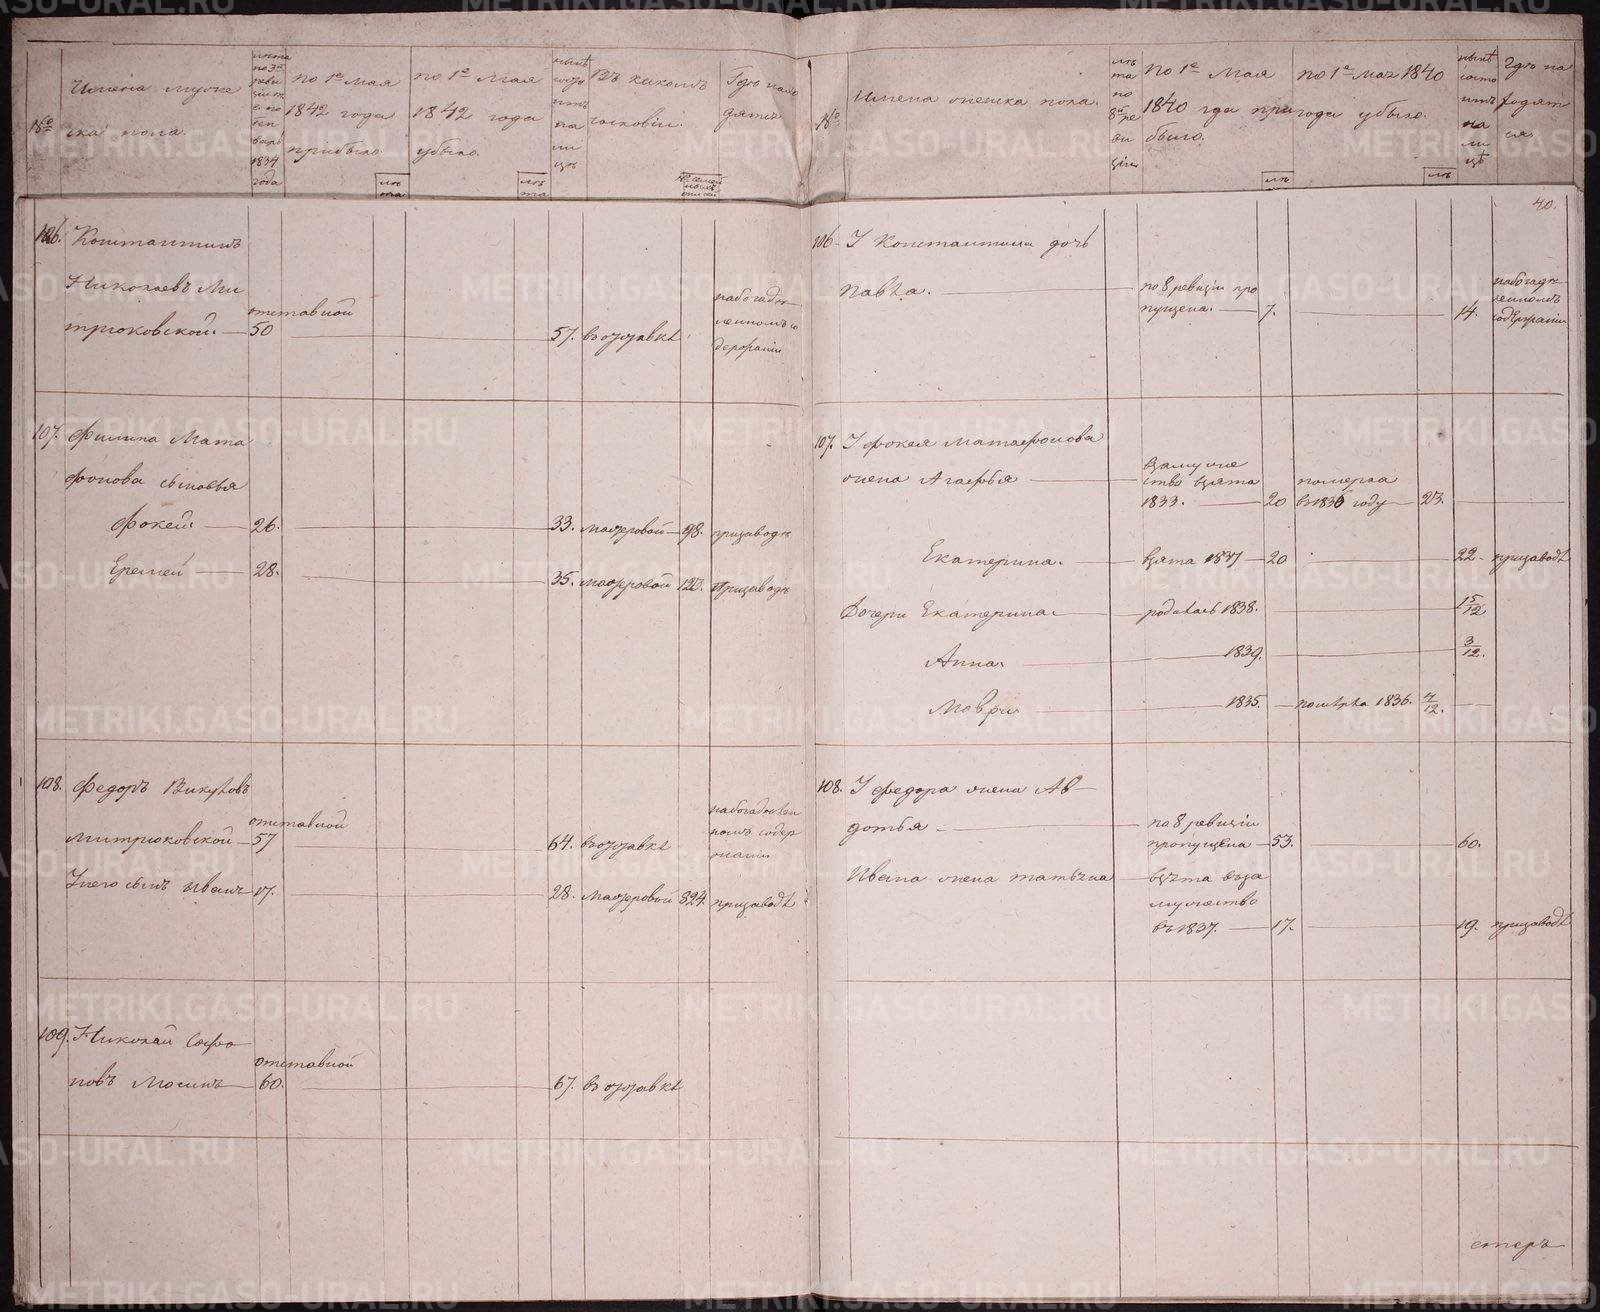 №
Имена муже
ска пола.
лѣта
года
1834
по 1е Мая
1842 года
прибыло.
лѣ
та
по 1е Мая
1842 года
убыло.
лѣ
та
нынѣ
на
ли
цѣ
сословіи.
Гдѣ нахо
дятся
106. Константинъ
Николаевъ Ми
трюковской. — отставной 50
57. въ отставкѣ
на богадѣ
ленномъ со
держаніи
107. Филипа Мата
фонова сыновья
Фокей — 26.
33. мастеровой — 98. при заводѣ
Еремей — 28.
35. мастеровой 123. при заводѣ
108. Федоръ Викуловъ
Митрюковской — отставной 57
64. въ отставкѣ
на богаделен
номъ содер
жаніи
У него сынъ Иванъ — 17.
28. мастеровой 824. при заводѣ
109. Николай Сафо
новъ Мосинъ — отставной 60.
67. въ отставкѣ
№
Имена женска пола.
лѣ
та
по
8й ре
ви
ціи
по 1е Мая
1840 года при
было.
лѣ
по 1е Мая 1840
года убыло.
лѣ
нынѣ
состо
итъ
на
ли
цѣ
Гдѣ на
ходят
ся.
40.
106. У Константина дочь
Павла.
по 8 ревиціи про
пущена. — 7.
14.
на богадѣ
ленномъ
содержаніи
107. У Фокея Матафонова
жена Агафья
взамуже
ство взята
1833. — 20
померла
въ 1836 году — 23.
Екатерина. — взята 1837 — 20
22. при заводѣ
Дочери Екатерина — родилась 1838.
15/12
Анна. — 1839.
3/12.
Мавра — 1835. — померла 1836. 7/12.
108. У Федора жена Ав
дотья —
по 8 ревиціи
пропущена — 53.
60.
Ивана жена Татьяна — взята въ за
мужество
въ 1837. — 17.
19. при заводѣ
METRIKI.GASO-URAL.RU